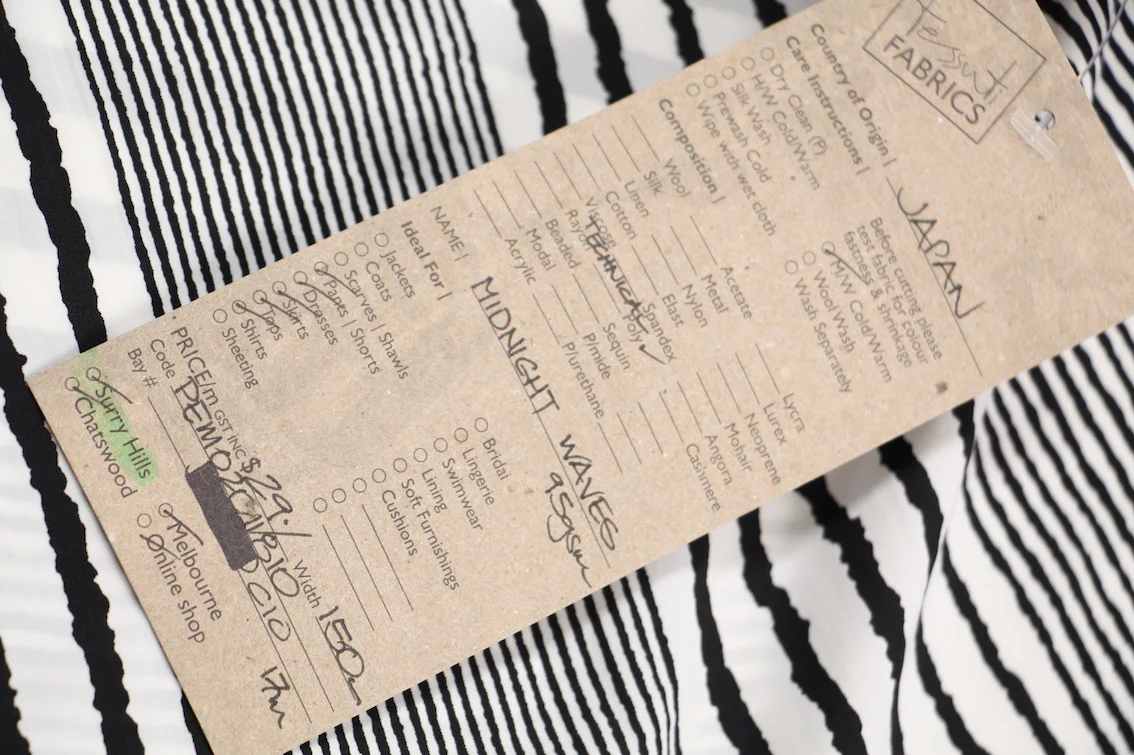 Tessuti
FABRICS
Country of Origin | JAPAN
Care Instructions |
Before cutting please
test fabric for colour
fastness & shrinkage
Dry Clean (P)
H/W Cold/Warm
Silk Wash
Prewash Cold
Wipe with wet cloth
M/W Cold/Warm
Wool Wash
Wash Separately
Composition |
Wool
Silk
Linen
Cotton
Viscose
Rayon
Beaded
Modal
Acrylic
TECHNICAL
Acetate
Metal
Nylon
Elast
Spandex
Poly
Sequin
P/mide
P/urethane
Lycra
Lurex
Neoprene
Mohair
Angora
Cashmere
NAME | MIDNIGHT WAVES
95gsm
Ideal For |
Jackets
Coats
Scarves | Shawls
Pants | Shorts
Dresses
Skirts
Tops
Shirts
Sheeting
Bridal
Lingerie
Swimwear
Lining
Soft Furnishings
Cushions
PRICE/m GST INC $29.- Width 150
Code
Bay # C10 17m
Surry Hills
Chatswood
Melbourne
Online shop